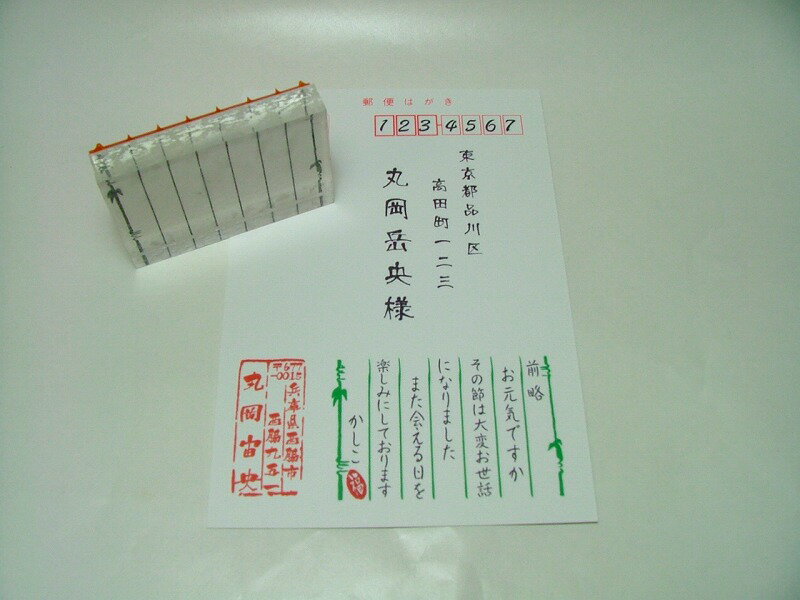 郵便はがき
123-4567
東京都品川区
高田町一二三
丸岡岳央様
前略
お元気ですか
その節は大変お世話
になりました
また会える日を
楽しみにしております
かしこ
福
〒677
-0015
兵庫県西脇市
西脇九五一
丸岡宙央